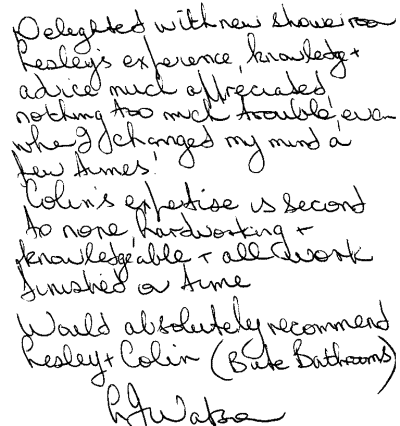 Delighted with new shower room
Lesley's experience, knowledge +
advice much appreciated,
nothing too much trouble, even
when I changed my mind a
few times!
Colin's expertise is second
to none, hardworking +
knowledgeable + all work
finished on time
Would absolutely recommend
Lesley + Colin (Bute Bathrooms)
Watson